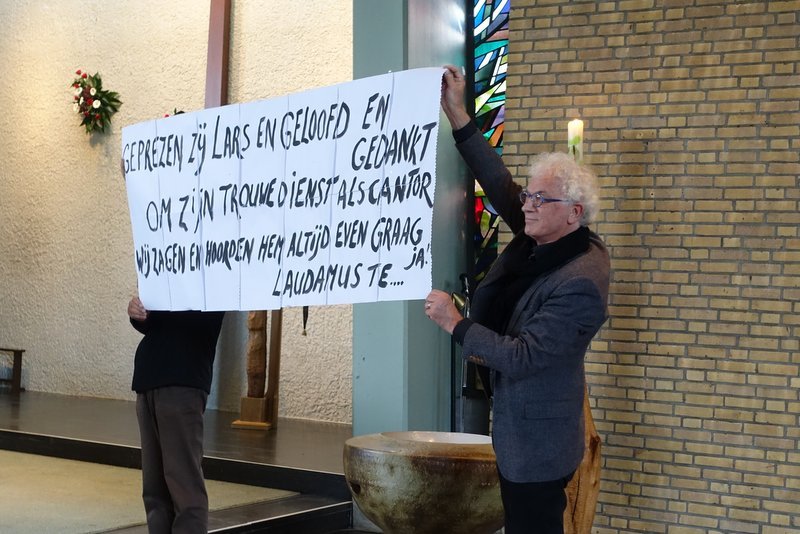 GEPREZEN ZIJ LARS EN GELOOFD EN
GEDANKT
OM ZIJN TROUWE DIENST ALS CANTOR
WIJ ZAGEN EN HOORDEN HEM ALTIJD EVEN GRAAG,
JA!
LAUDAMUS TE....